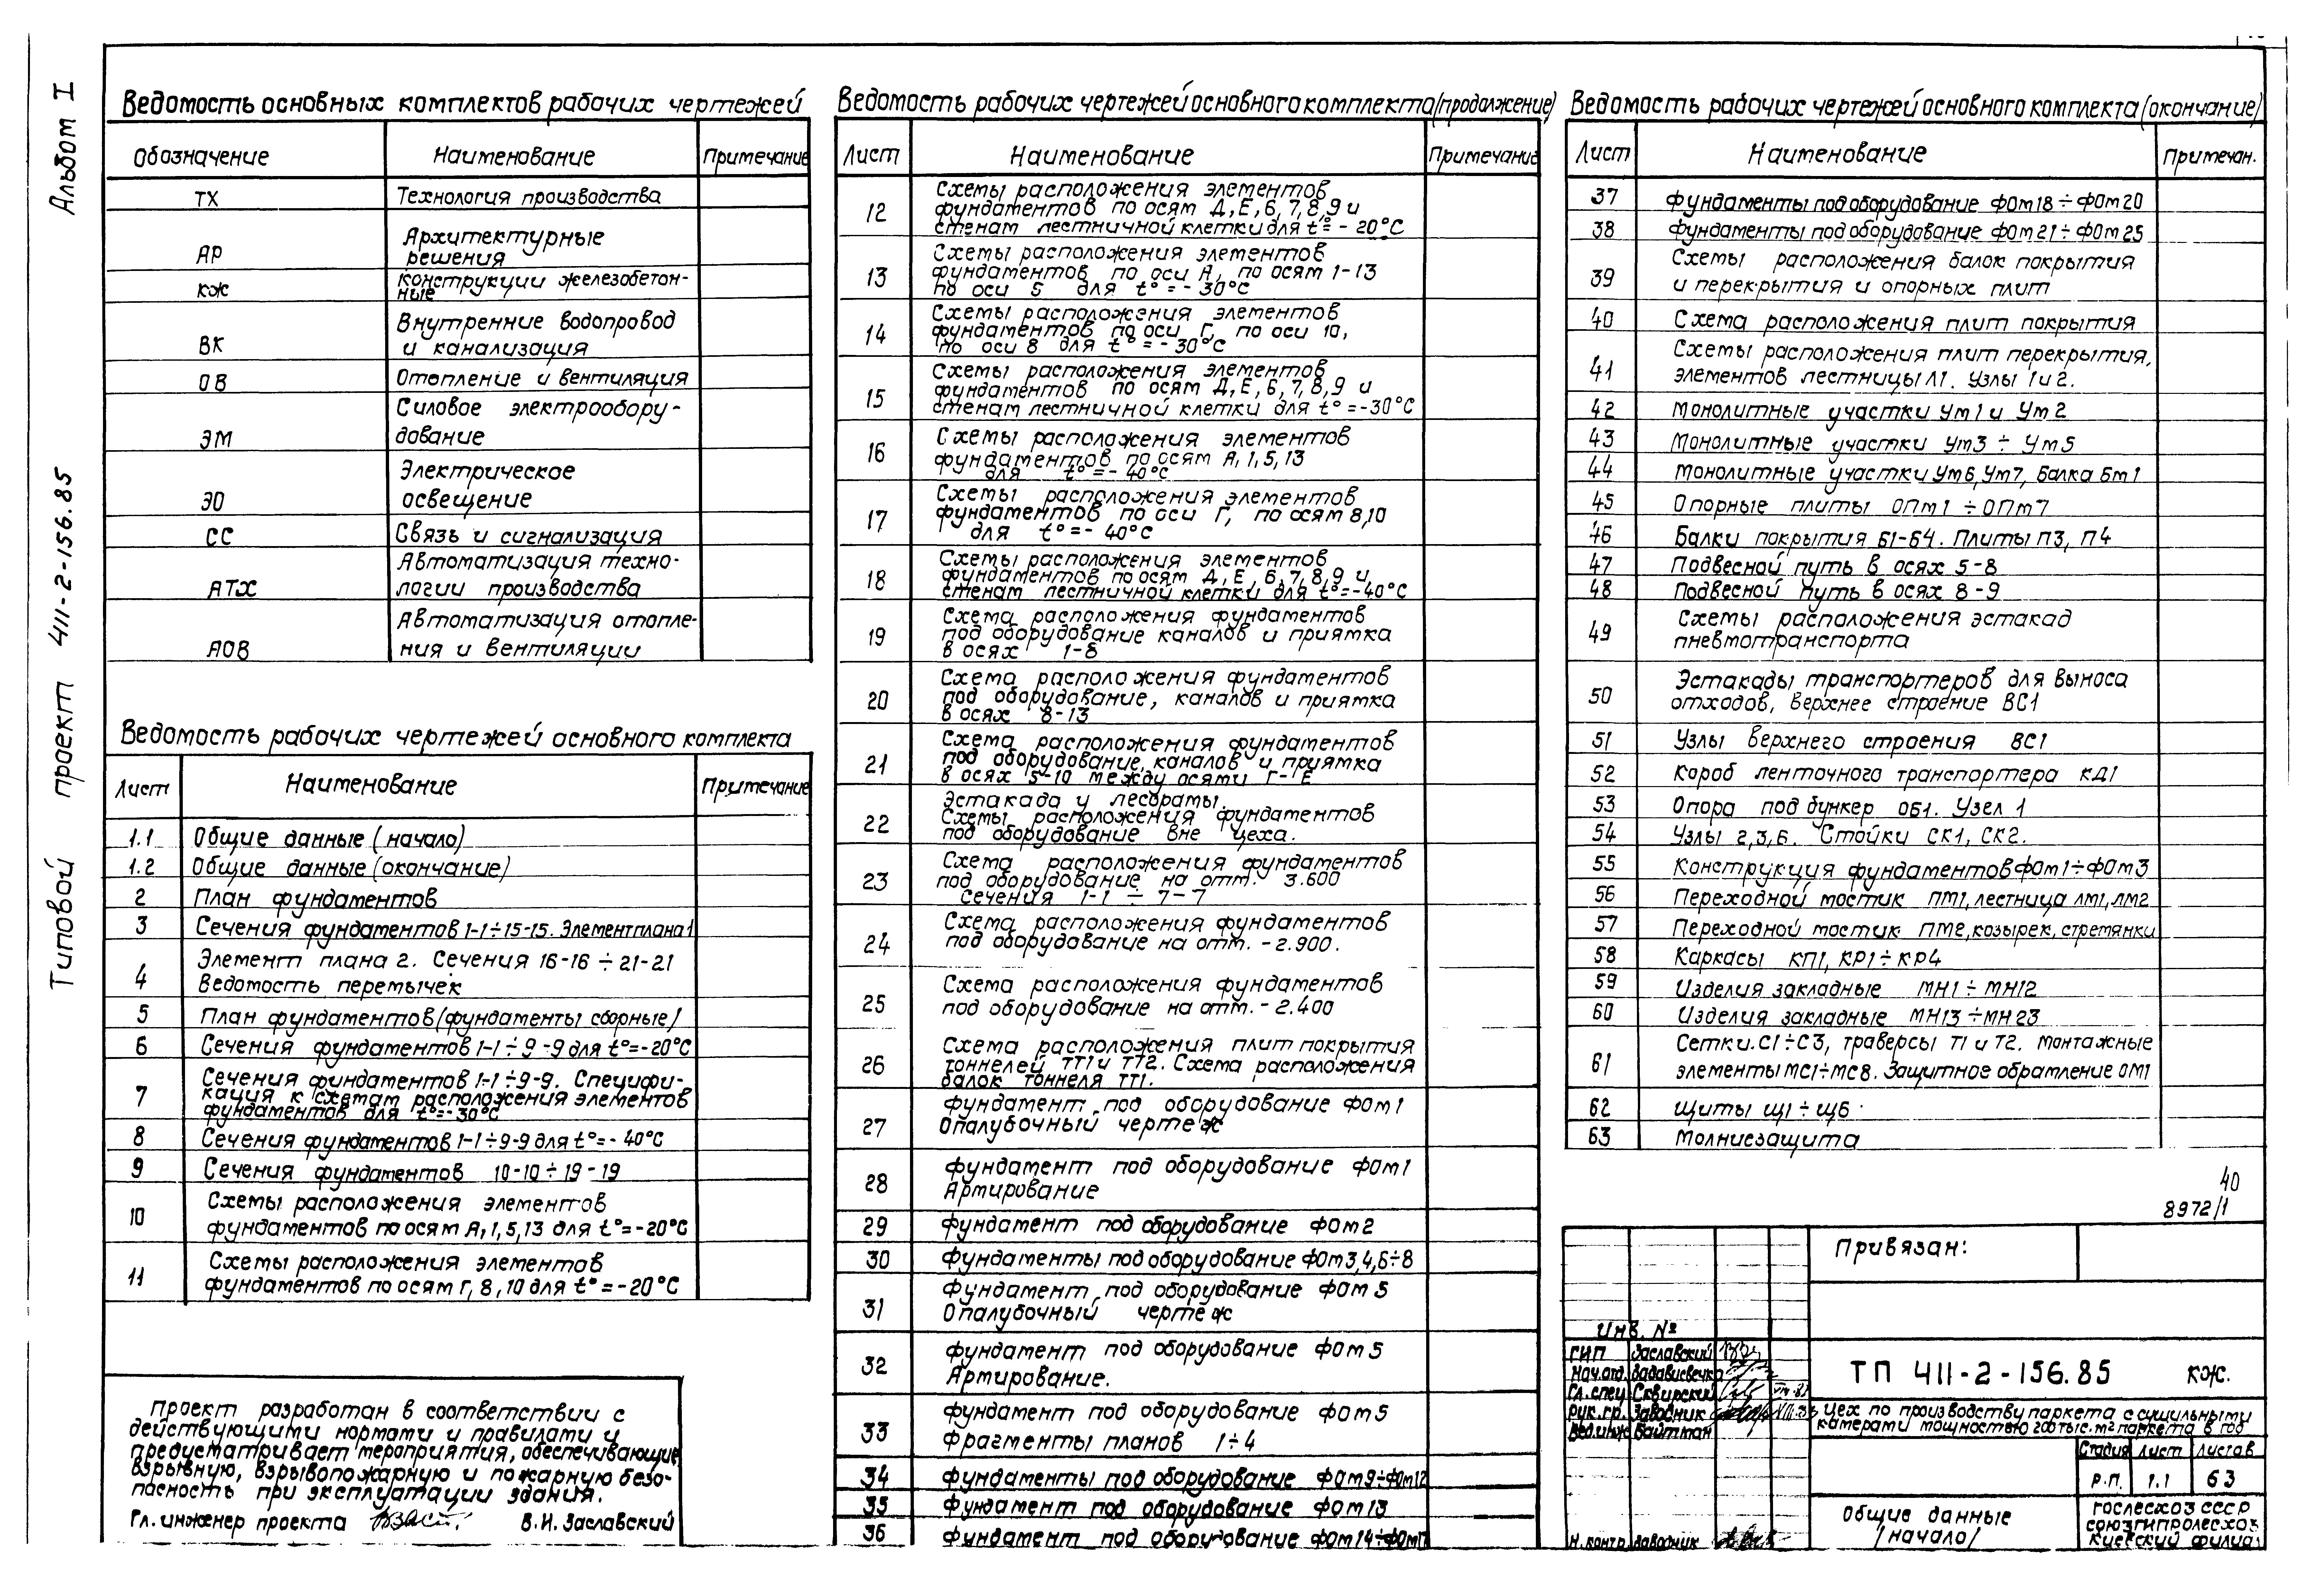 Альбом I
Типовой проект 411-2-156.85
Ведомость основных комплектов рабочих чертежей
Обозначение Наименование Примечание
ТХ Технология производства
АР Архитектурные
решения
КЖ Конструкции железобетон-
ные
ВК Внутренние водопровод
и канализация
ОВ Отопление и вентиляция
ЭМ Силовое электрообору-
дование
ЭО Электрическое
освещение
СС Связь и сигнализация
АТХ Автоматизация техно-
логии производства
АОВ Автоматизация отопле-
ния и вентиляции
Ведомость рабочих чертежей основного комплекта
Лист Наименование Примечание
1.1 Общие данные (начало)
1.2 Общие данные (окончание)
2 План фундаментов
3 Сечения фундаментов 1-1÷15-15. Элемент плана 1
4 Элемент плана 2. Сечения 16-16 ÷ 21-21
Ведомость перемычек
5 План фундаментов (фундаменты сборные)
6 Сечения фундаментов 1-1÷9-9 для t°=-20°С
7 Сечения фундаментов 1-1÷9-9. Специфи-
кация к схемам расположения элементов
фундаментов для t°=-30°С
8 Сечения фундаментов 1-1÷9-9 для t°=-40°С
9 Сечения фундаментов 10-10÷19-19
10 Схемы расположения элементов
фундаментов по осям А,1,5,13 для t°=-20°С
11 Схемы расположения элементов
фундаментов по осям Г,8,10 для t°=-20°С
Проект разработан в соответствии с
действующими нормами и правилами и
предусматривает мероприятия, обеспечивающие
взрывную, взрывопожарную и пожарную безо-
пасность при эксплуатации здания.
Гл. инженер проекта В.И. Заславский
Ведомость рабочих чертежей основного комплекта (продолжение)
Лист Наименование Примечание
12 Схемы расположения элементов
фундаментов по осям Д,Е,6,7,8,9 и
стенам лестничной клетки для t°=-20°С
13 Схемы расположения элементов
фундаментов по оси А, по осям 1-13
по оси 5 для t°=-30°С
14 Схемы расположения элементов
фундаментов по оси Г, по оси 10,
по оси 8 для t°=-30°С
15 Схемы расположения элементов
фундаментов по осям Д,Е,6,7,8,9 и
стенам лестничной клетки для t°=-30°С
16 Схемы расположения элементов
фундаментов по осям А,1,5,13
для t°=-40°С
17 Схемы расположения элементов
фундаментов по оси Г, по осям 8,10
для t°=-40°С
18 Схемы расположения элементов
фундаментов по осям Д,Е,6,7,8,9 и
стенам лестничной клетки для t°=-40°С
19 Схема расположения фундаментов
под оборудование каналов и приямка
в осях 1-8
20 Схема расположения фундаментов
под оборудование, каналов и приямка
в осях 8-13
21 Схема расположения фундаментов
под оборудование, каналов и приямка
в осях 5-10 между осями Г-Е
22 Эстакада у лесорамы.
Схемы расположения фундаментов
под оборудование вне цеха.
23 Схема расположения фундаментов
под оборудование на отм. 3.600
Сечения 1-1 ÷ 7-7
24 Схема расположения фундаментов
под оборудование на отм. -2.900.
25 Схема расположения фундаментов
под оборудование на отм. -2.400
26 Схема расположения плит покрытия
тоннелей ТТ1 и ТТ2. Схема расположения
балок тоннеля ТТ1.
27 Фундамент под оборудование ФОм1
Опалубочный чертеж
28 Фундамент под оборудование ФОм1
Армирование
29 Фундамент под оборудование ФОм2
30 Фундаменты под оборудование ФОм3,4,6÷8
31 Фундамент под оборудование ФОм5
Опалубочный чертеж
32 Фундамент под оборудование ФОм5
Армирование.
33 Фундамент под оборудование ФОм5
Фрагменты планов 1÷4
34 Фундаменты под оборудование ФОм9÷ФОм12
35 Фундамент под оборудование ФОм13
36 Фундамент под оборудование ФОм14÷ФОм17
Ведомость рабочих чертежей основного комплекта (окончание)
Лист Наименование Примечан.
37 Фундаменты под оборудование ФОм18÷ФОм20
38 Фундаменты под оборудование ФОм21÷ФОм25
39 Схемы расположения балок покрытия
и перекрытия и опорных плит
40 Схема расположения плит покрытия
41 Схемы расположения плит перекрытия,
элементов лестницы Л1. Узлы 1 и 2.
42 Монолитные участки Ум1 и Ум2
43 Монолитные участки Ум3 ÷ Ум5
44 Монолитные участки Ум6, Ум7, Балка Бм1
45 Опорные плиты ОПм1 ÷ ОПм7
46 Балки покрытия Б1-Б4. Плиты П3, П4
47 Подвесной путь в осях 5-8
48 Подвесной путь в осях 8-9
49 Схемы расположения эстакад
пневмотранспорта
50 Эстакады транспортеров для выноса
отходов, верхнее строение ВС1
51 Узлы верхнего строения ВС1
52 Короб ленточного транспортера КД1
53 Опора под бункер ОБ1. Узел 1
54 Узлы 2,3,6. Стойки СК1, СК2.
55 Конструкция фундаментов ФОм1÷ФОм3
56 Переходной мостик ПМ1, лестница ЛМ1, ЛМ2
57 Переходной мостик ПМ2, козырек, стремянки
58 Каркасы КП1, КР1÷КР4
59 Изделия закладные МН1 ÷ МН12
60 Изделия закладные МН13 ÷ МН23
61 Сетки С1÷С3, траверсы Т1 и Т2. Монтажные
элементы МС1÷МС8. Защитное обрамление ОМ1
62 Щиты Щ1 ÷ Щ6
63 Молниезащита
40
8972/1
Привязан:
Инв. №
ГИП Заславский
Нач.отд.
Гл.спец Сквирский
Рук.гр. Заводник
Вед.инж Вайтман
Н.контр. Заводник
ТП 411-2-156.85 КЖ.
Цех по производству паркета с сушильными
камерами мощностью 200 тыс. м² паркета в год
Стадия Лист Листов
Р.П. 1.1 63
Общие данные
/начало/
Гослесхоз СССР
Союзгипролесхоз
Киевский филиал